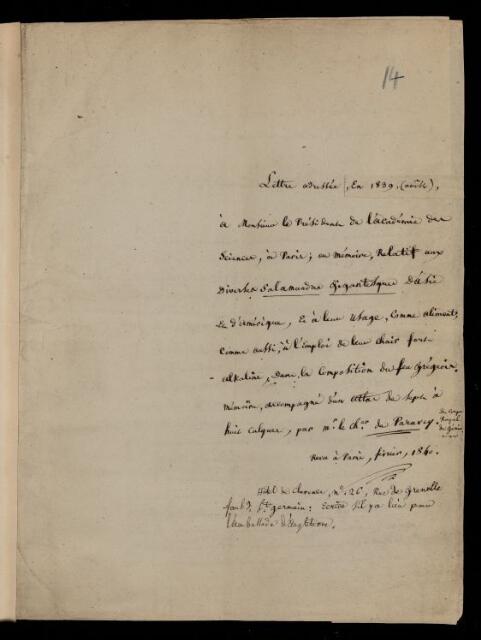 14
Lettre adressée, En 1839, (août),
à Monsieur le Président de l'académie des
Sciences, à Paris; en mémoire, Relatif aux
Diverses Salamandres Gigantesques d'asie
Et d'amérique, Et à leur Usage, Comme aliment,
Comme aussi, à l'emploi de leur chair fort
alkaline, Dans la Composition du feu Grégeois.
Mémoire, accompagné d'un atlas de Sept à
huit Calques, par mr. le cher. de Paravey.
du Corps
Royal
du Génie
Revu à Paris, février, 1840.
Hôtel de Clarence, n°. 26, Rue de Grenelle
faub. St. germain: Ecrire s'il y a lieu par
l'Ambassade d'Angleterre.